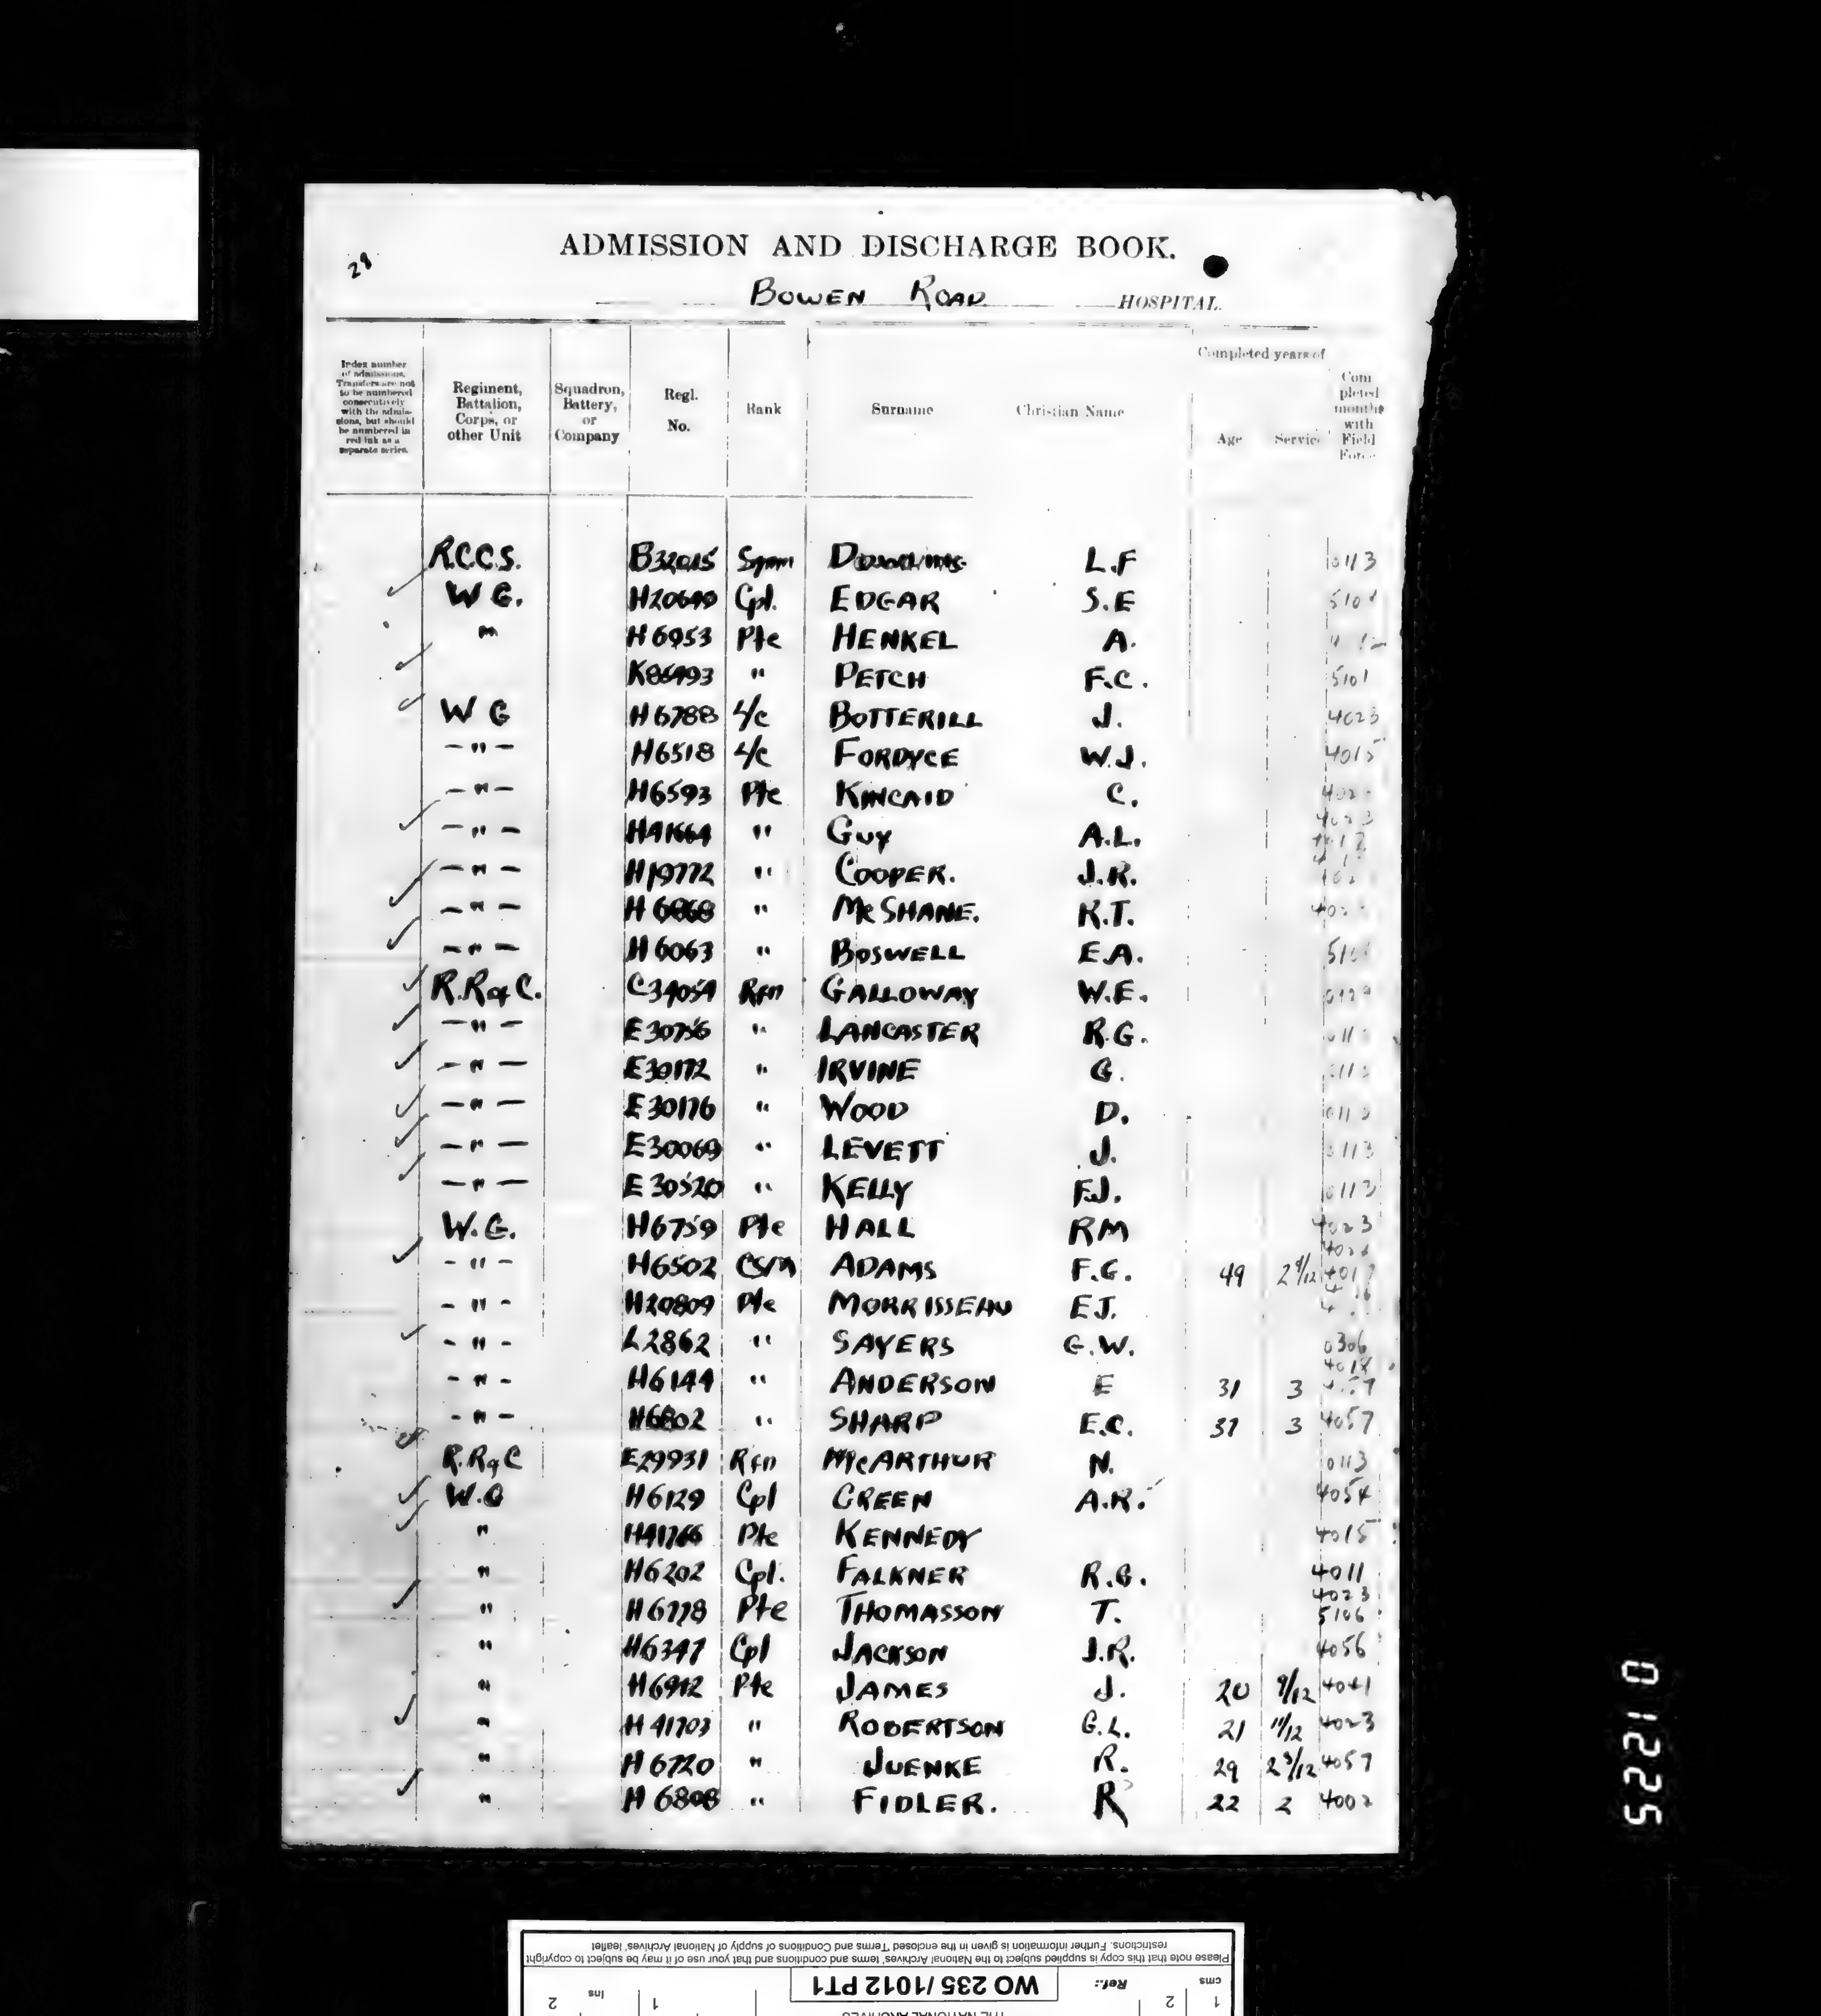 29
ADMISSION AND DISCHARGE BOOK.
BOWEN ROAD HOSPITAL.
Completed years of
Index number of admissions. Transfers are not to be numbered consecutively with the admissions, but should be numbered in red ink as a separate series.
Regiment, Battalion, Corps, or other Unit
Squadron, Battery, or Company
Regl. No.
Rank
Surname
Christian Name
Age
Service
Completed months with Field Force
R.C.C.S. B32015 Sgmn L.F 0113
W G. Cpl. EDGAR S.E
" H6953 Pte HENKEL A.
" PETCH F.C. 5101
W G H6788 L/C BOTTERILL J. 4023
-"- H6518 L/C FORDYCE W.J. 4015
-"- H6593 Pte KINCAID C.
-"- " GUY A.L.
-"- H19772 " COOPER. J.R.
-"- H6868 " McSHANE. R.T.
-"- H6063 " BOSWELL E.A.
R.R of C. C34054 Rfn GALLOWAY W.E.
-"- E30756 " LANCASTER R.G.
-"- E30172 " IRVINE G.
-"- E30176 " WOOD D.
-"- E30069 " LEVETT J. 0113
-"- E30520 " KELLY F.J. 0113
W.G. H6759 Pte HALL RM 4023
-"- H6502 CSM ADAMS F.G. 49
-"- H20809 Pte MORRISSEAU EJ.
-"- L2862 " SAYERS G.W. 0306
-"- H6144 " ANDERSON E 31 3
-"- H6802 " SHARP E.C. 37 3 4057
R.R of C E29931 Rfn McARTHUR N. 0113
W.G H6129 Cpl GREEN A.R. 4054
" H41766 Pte KENNEDY 4015
" H6202 Cpl. FALKNER R.G. 4011
4023
" H6778 Pte THOMASSON T. 5106
" H6347 Cpl JACKSON J.R. 4056
" H6912 Pte JAMES J. 20 9/12 4041
" H41703 " ROBERTSON G.L. 21 11/12 4023
" H6720 " JUENKE R. 29 4057
" H6808 " FIDLER. R 22 2 4002
01225
Please note that this copy is supplied subject to the National Archives' terms and conditions and that your use of it may be subject to copyright
restrictions. Further information is given in the enclosed 'Terms and Conditions of supply of National Archives' leaflet
cms 1 2 Ref.: WO 235/1012 PT1 1 Ins 2
THE NATIONAL ARCHIVES